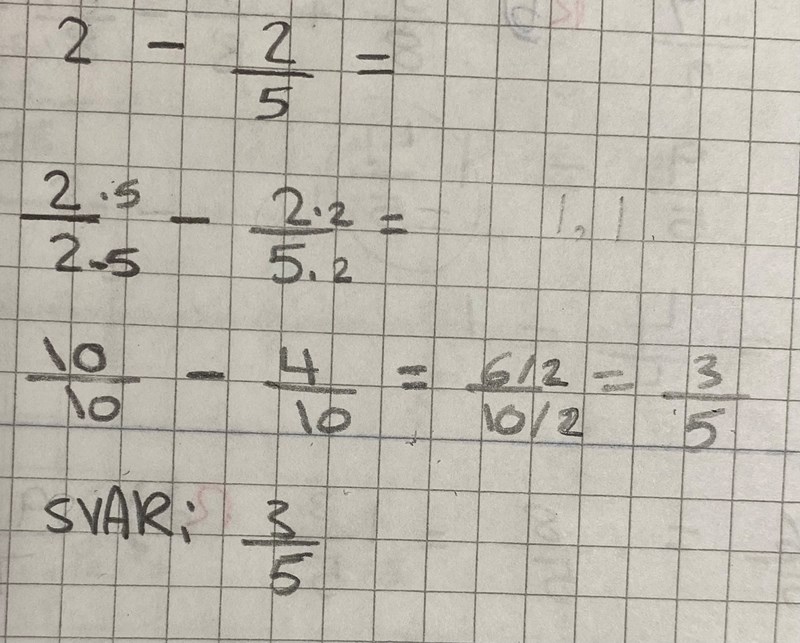 2 - 2/5 =
2·5/2·5 - 2·2/5·2 =
10/10 - 4/10 = 6/2/10/2 = 3/5
SVAR: 3/5